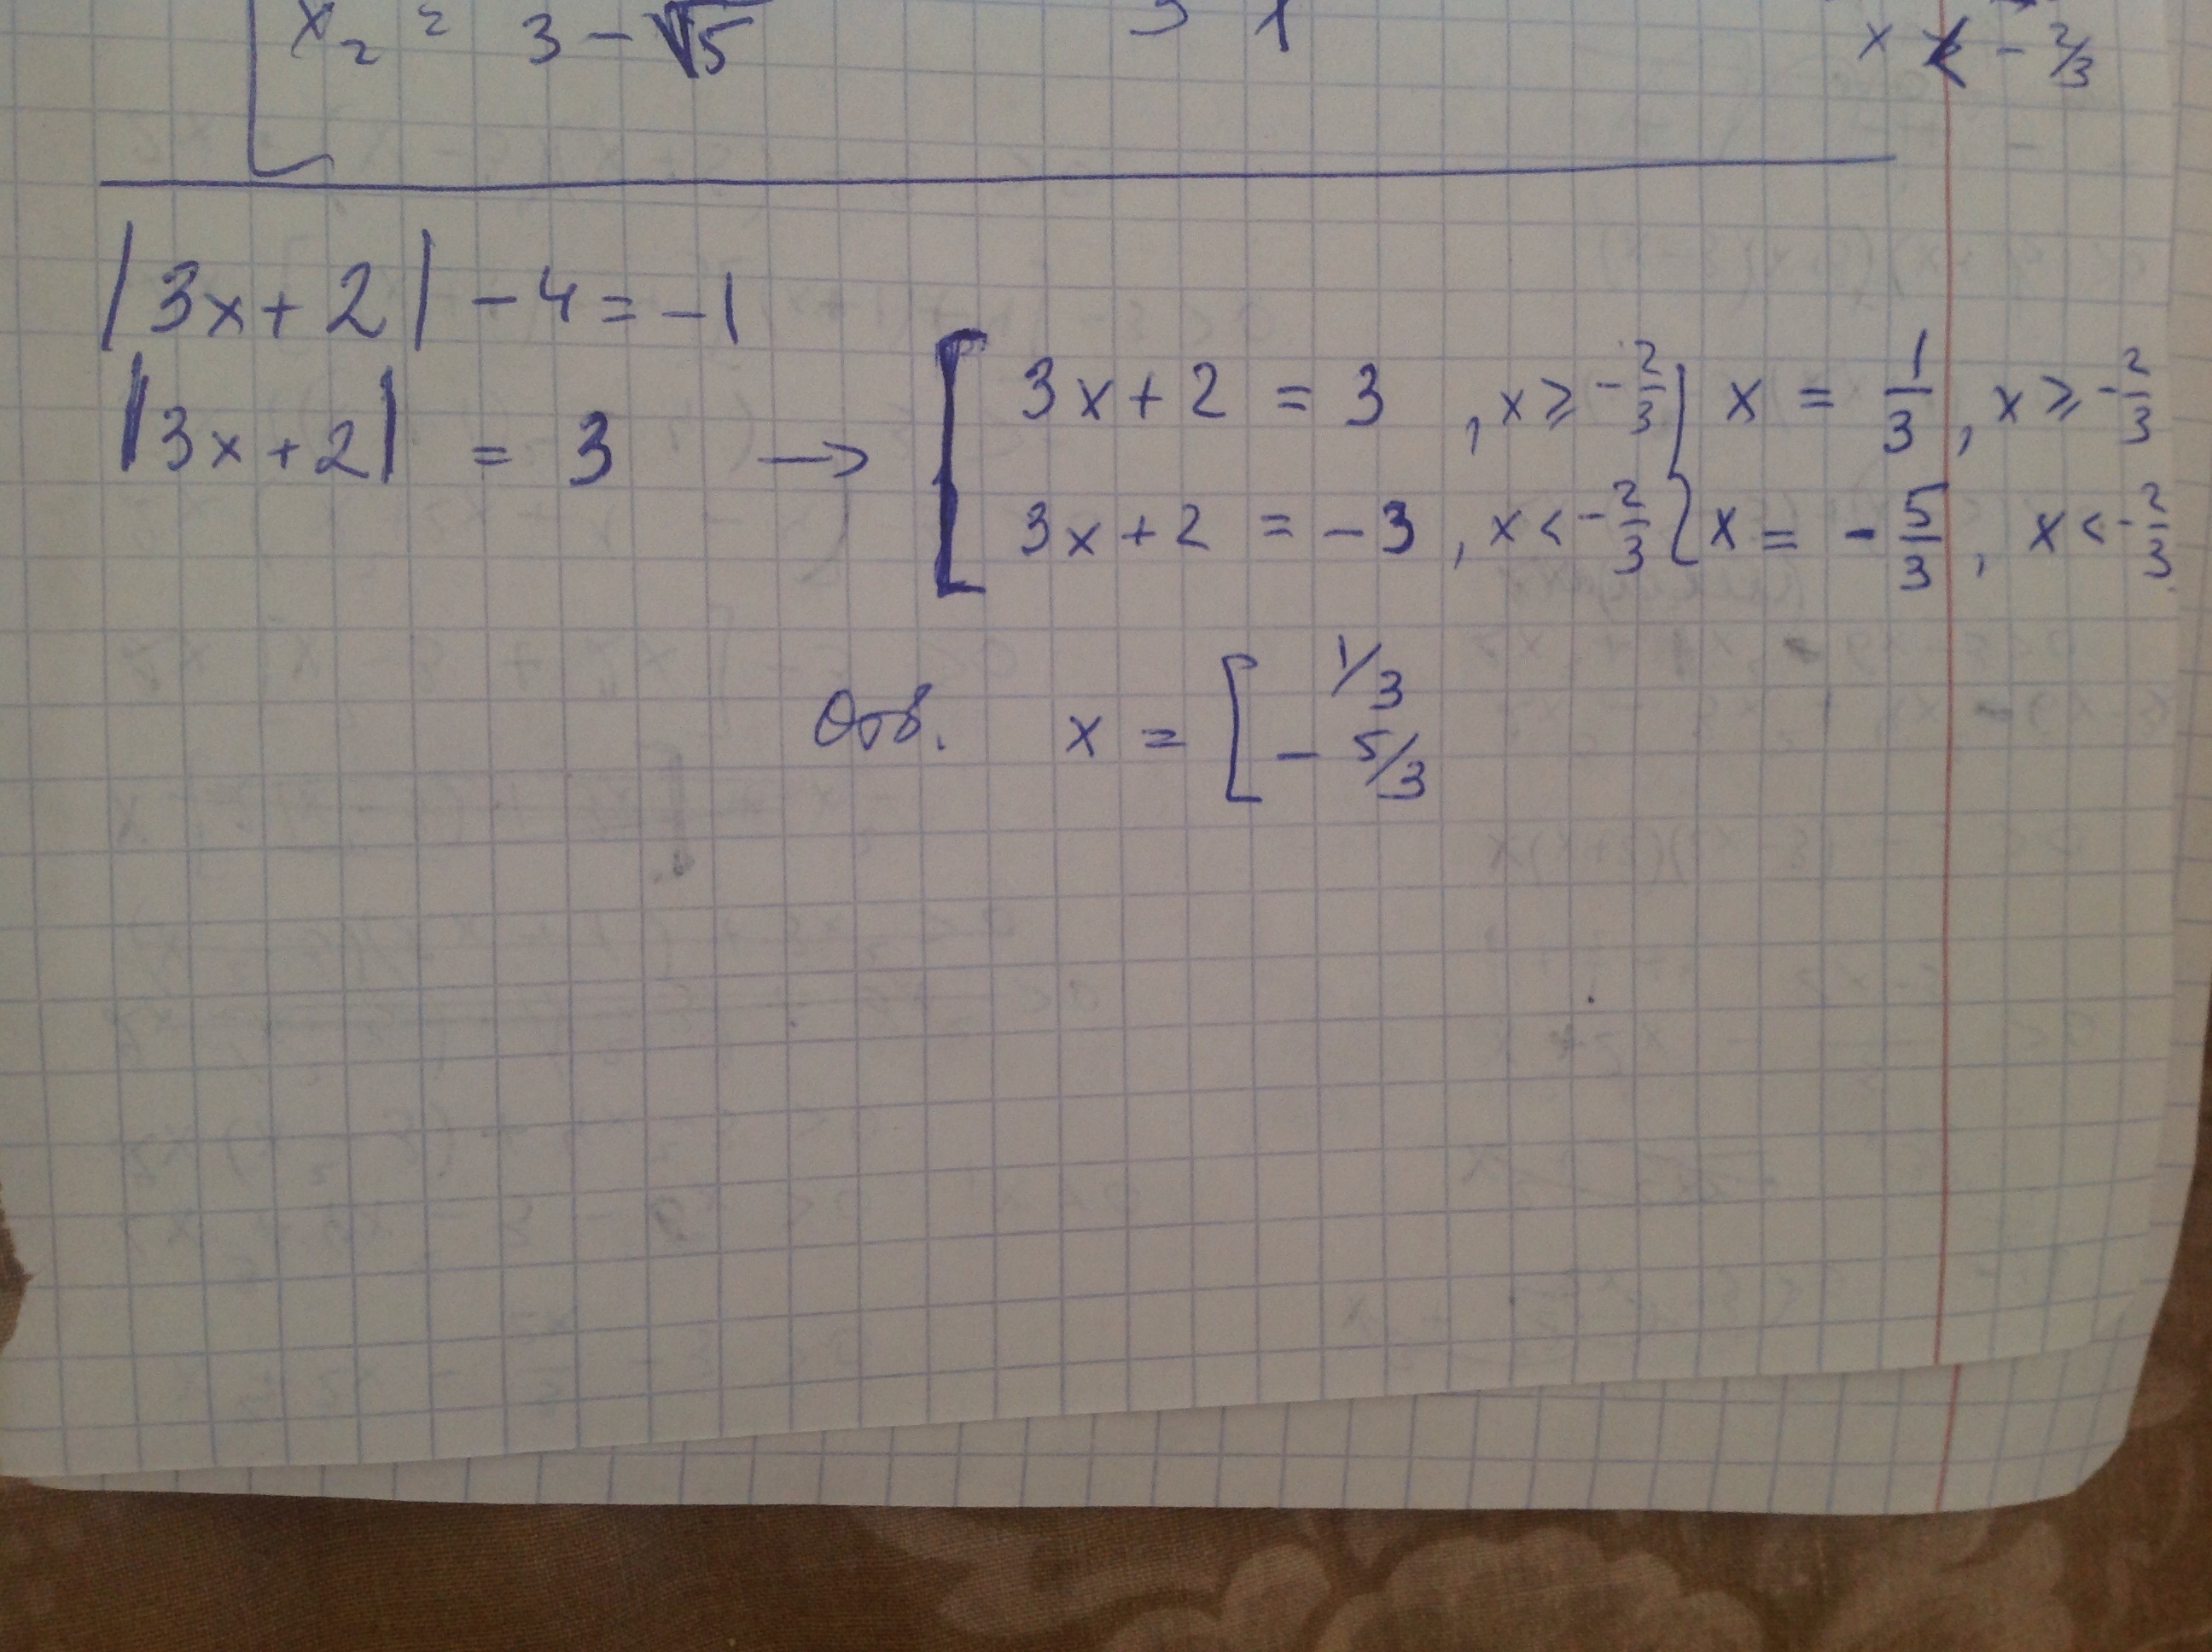 x₂ = 3 - √5
x < - 2/3
|3x + 2| - 4 = -1
|3x + 2| = 3 → [ 3x + 2 = 3 , x ≥ - 2/3 } x = 1/3 , x ≥ - 2/3
3x + 2 = - 3 , x < - 2/3 { x = - 5/3 , x < - 2/3
Отв. x = [ 1/3
- 5/3